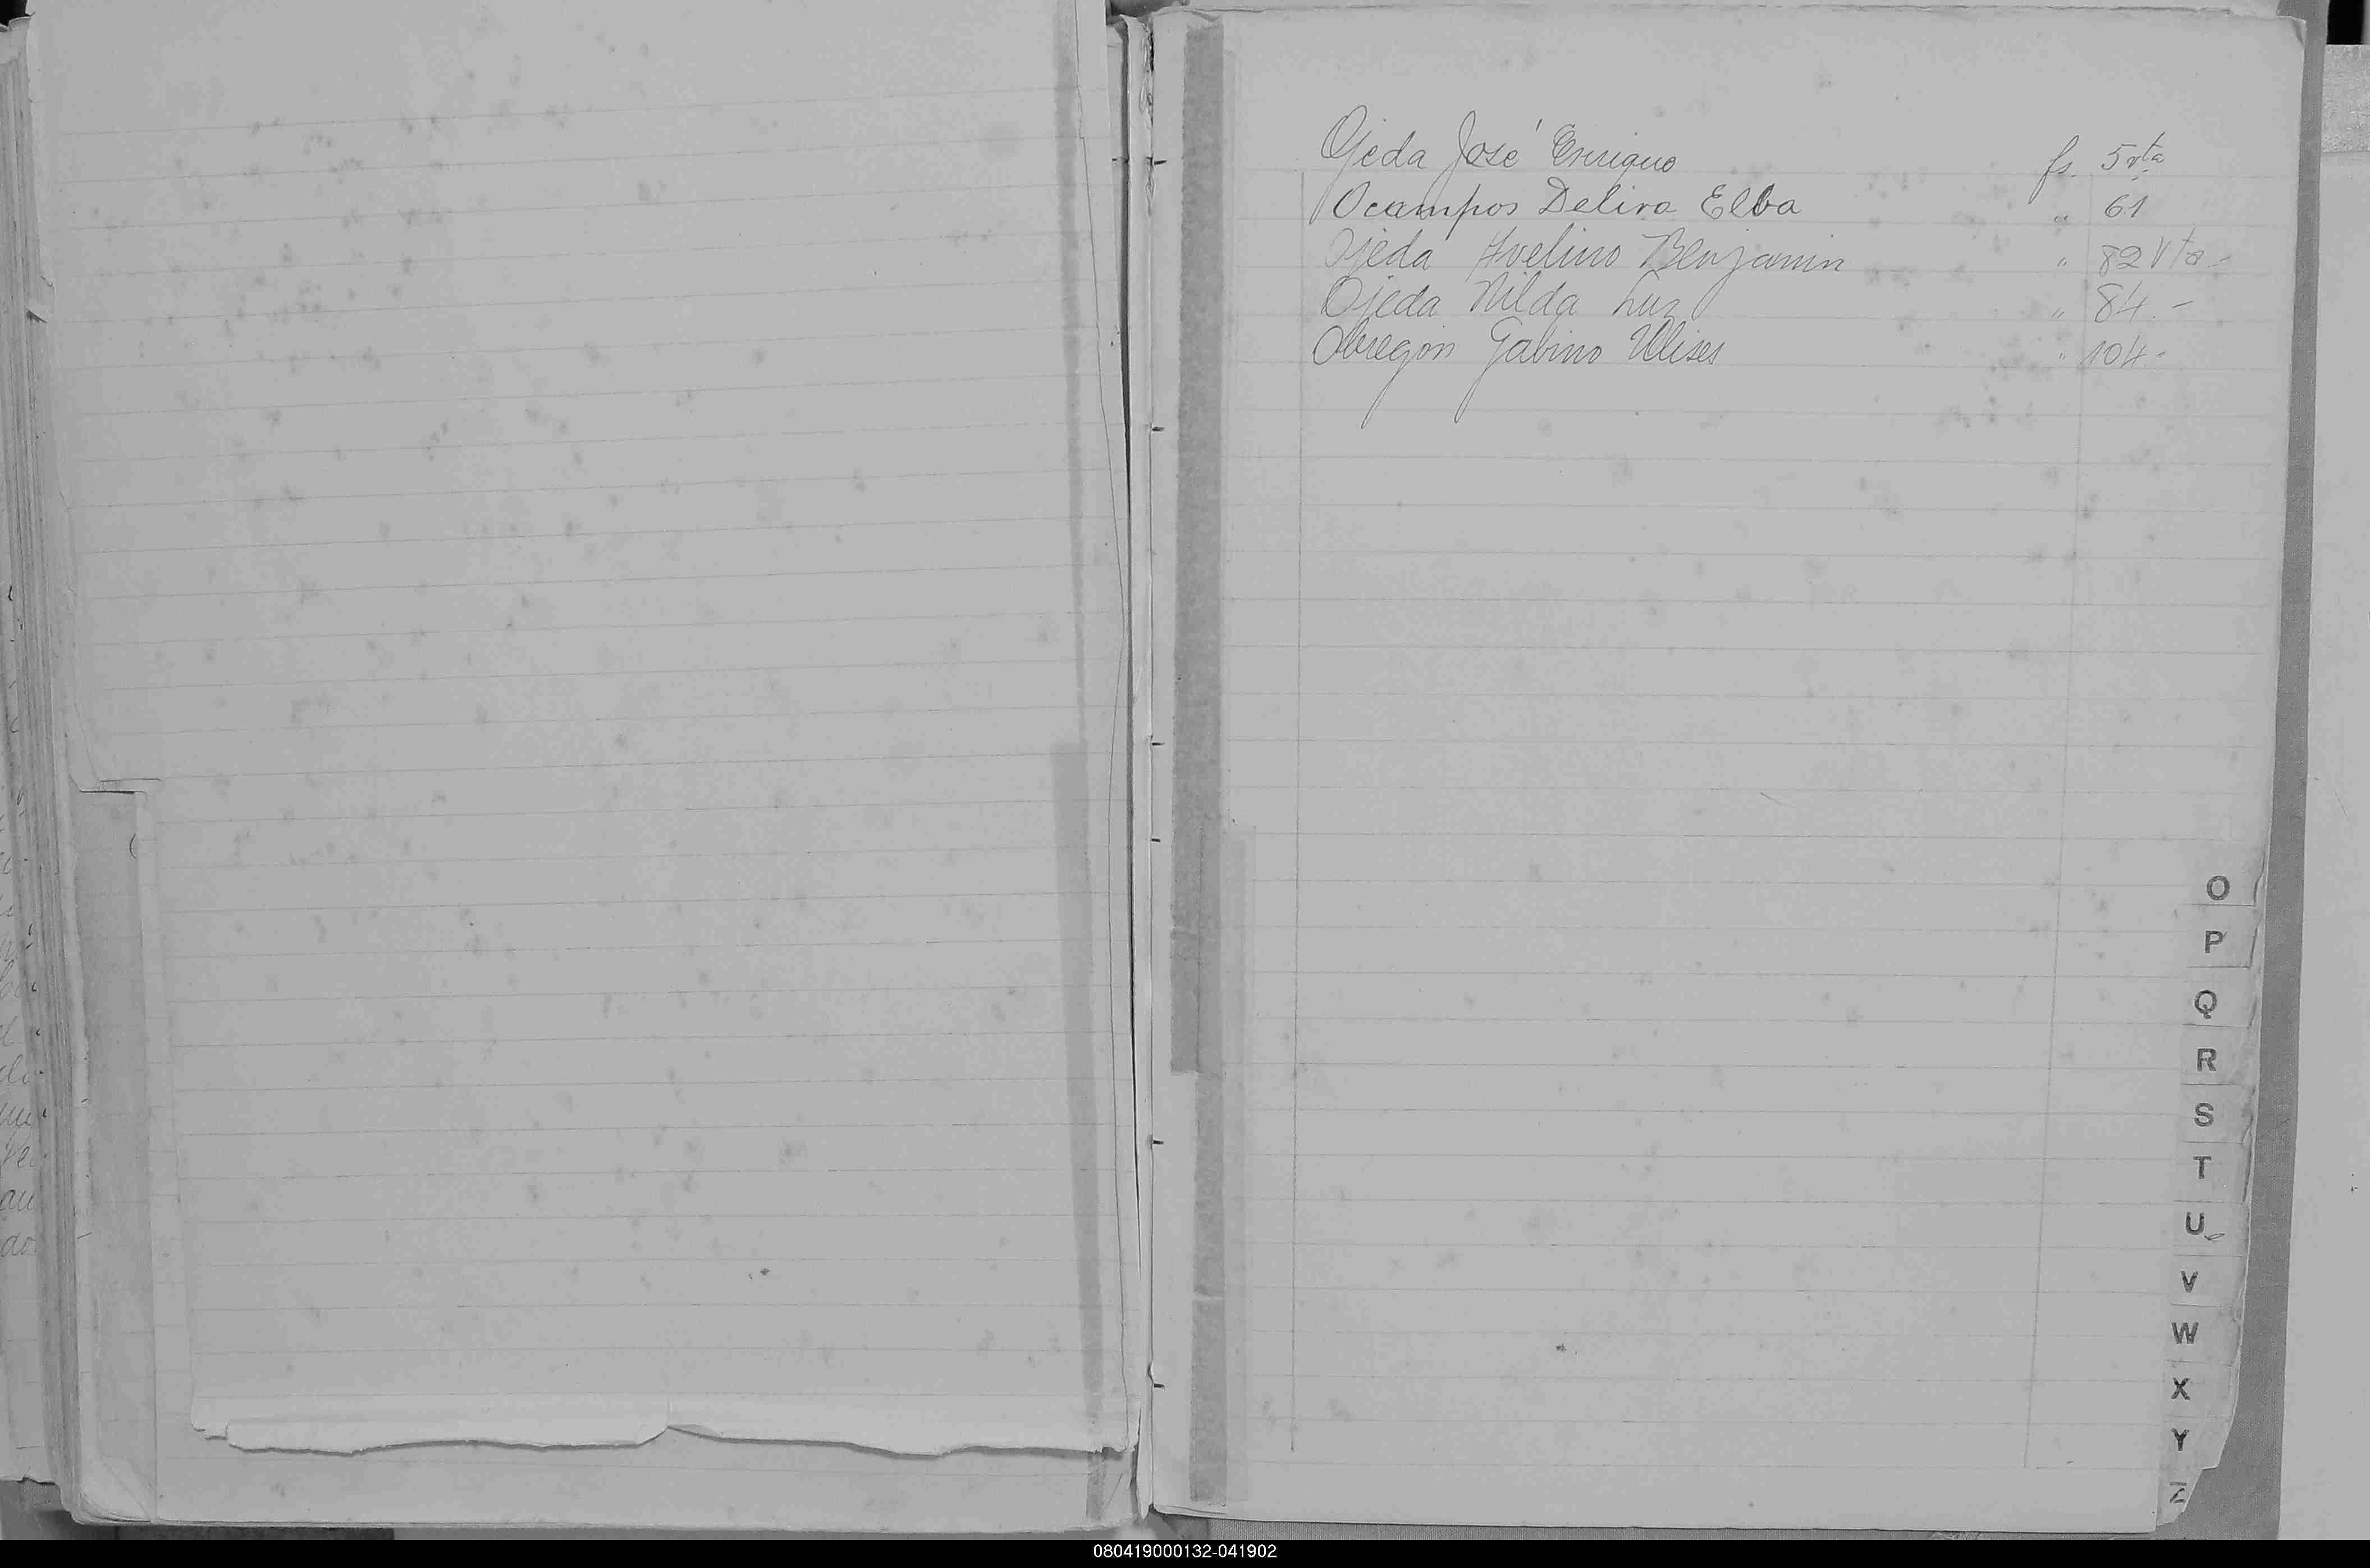 Ojeda José Enrique fs. 5 vta
Ocampos Delira Elba " 61
Ojeda Avelino Benjamin " 82 Vta-
Ojeda Nilda Luz " 84.-
Obregón Gabino Ulises " 104-
O
P
Q
R
S
T
U
V
W
X
Y
Z
080419000132-041902